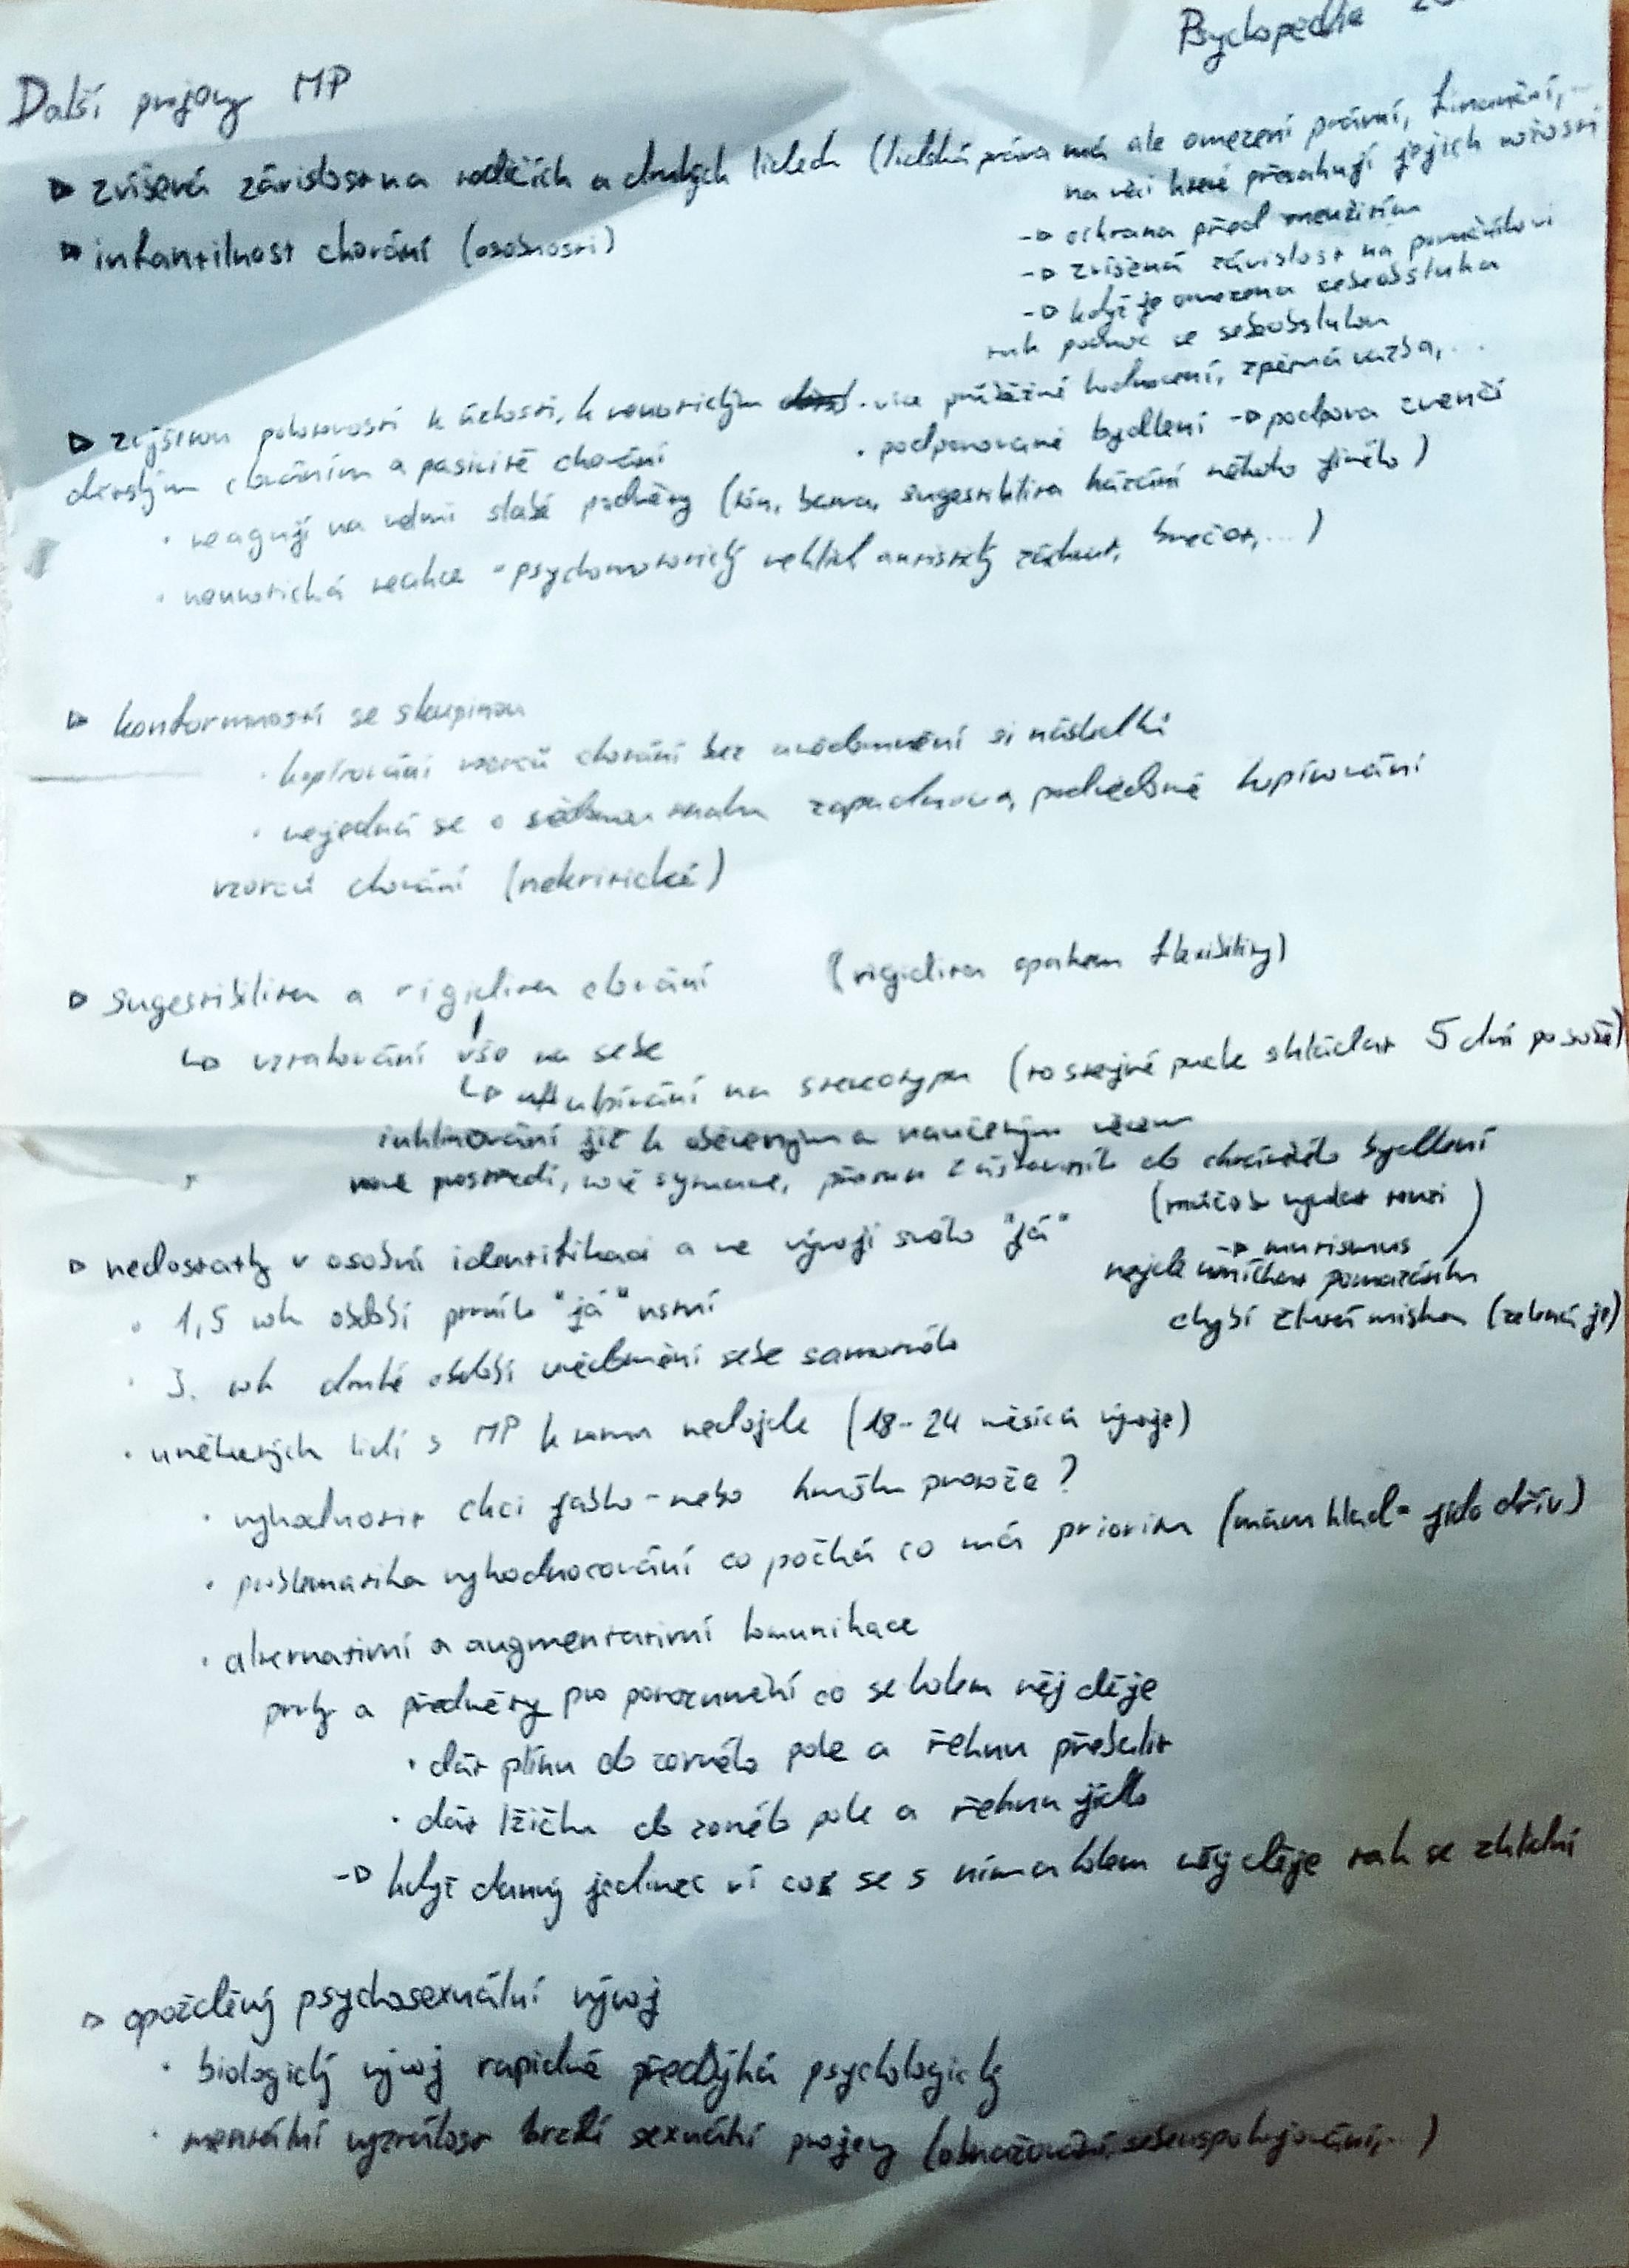 Psychopedie
Další projevy MP
▷ zvíšená závislost na rodičích a druhých lidech (lidská práva má ale omezení právní, finanční,..
na věci které přesahují jejich možnosti
-▷ ochrana před zneužitím
-▷ zvíšená závislost na pomočníkovi
-▷ když je omezena sebeobsluha
tak pomoc se sebobsluhou
▷ infantilnost chování (osobnosti)
▷ zvýšenou pohotovostí k úzkosti, k neurotickým
· více průběžné hodnocení, zpětná vazba,...
dětským chováním a pasivitě chování
· podporované bydlení -▷ podpora zvenčí
· reagují na velmi slabé podněty (tón, barva, sugestibilita házání někoho jiného)
· neurotická reakce - psychomotorický neklid autistický záchvat, brečet,...)
▷ konformností se skupinou
· kopírování vzorců chování bez uvědomění si následků
· nejedná se o vědomou snahu zapadnout, podvědomé kopírování
vzorců chování (nekritické)
▷ Sugestibilita a rigidita chování (rigidita opakem flexibility)
↳ vztahování vše na sebe
↳ ulpívání na stereotypu (to stejné puzle skládat 5 dní po sobě)
inklinování jít k osvěeným a naučeným věcem
nové prostředí, nové situace, přesun z ústavního do chráněného bydlení
▷ nedostatky v osobní identifikaci a ve vývoji svého "já"
(může to vyvolat
-▷ mutismus )
nejde umíchat pomazánku
chybí žlutá miska (zelená je)
· 1,5 rok období prvního "já" ustní
· 3. rok druhé období uvědomění sebe samotného
· u některých lidí s MP k tomu nedojde (18-24 měsíců vývoje)
· vyhodnotit chci jabko - nebo hrušku protože?
· problematika vyhodnocování co počká co má prioritu (mám hlad = jídlo dřív)
· alternativní a augmentativní komunikace
prvky a předměty pro porozumění co se kolem něj děje
· dát plínu do zorného pole a řeknu přebalit
· dát lžičku do zorného pole a řeknu jídlo
-▷ když daný jedinec ví co se s ním a kolem něj děje tak se zklidní
▷ opožděný psychosexuální vývoj
· biologický vývoj rapidně předbýhá psychologický
· mentální vyzrálost brzdí sexuální projevy (obnažování, sebeuspokojování,..)